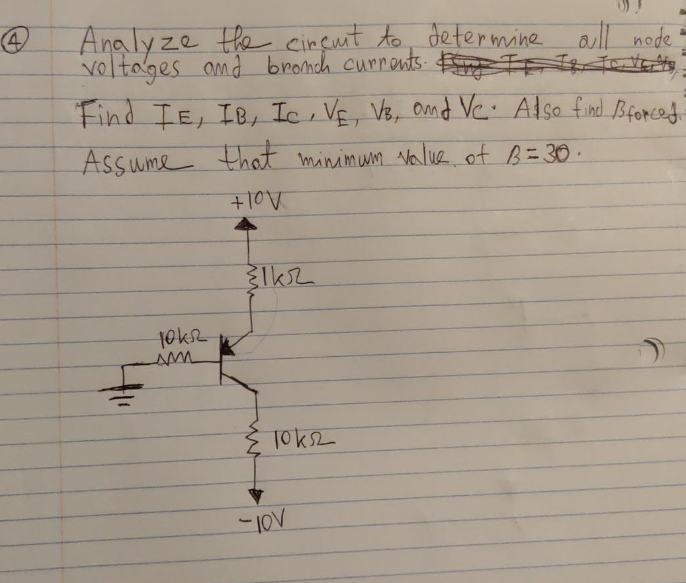 ④ Analyze the circuit to determine all node
voltages and branch currents.
Find IE, IB, Ic, VE, VB, and Vc. Also find βforced.
Assume that minimum value of β = 30.
+10V
1kΩ
10kΩ
10kΩ
-10V